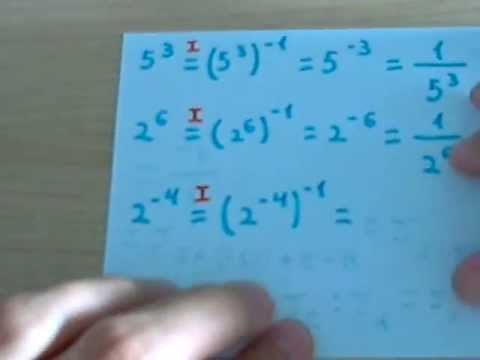 5³ =ᴵ (5³)⁻¹ = 5⁻³ = 1/5³
2⁶ =ᴵ (2⁶)⁻¹ = 2⁻⁶ = 1/2⁶
2⁻⁴ =ᴵ (2⁻⁴)⁻¹ =